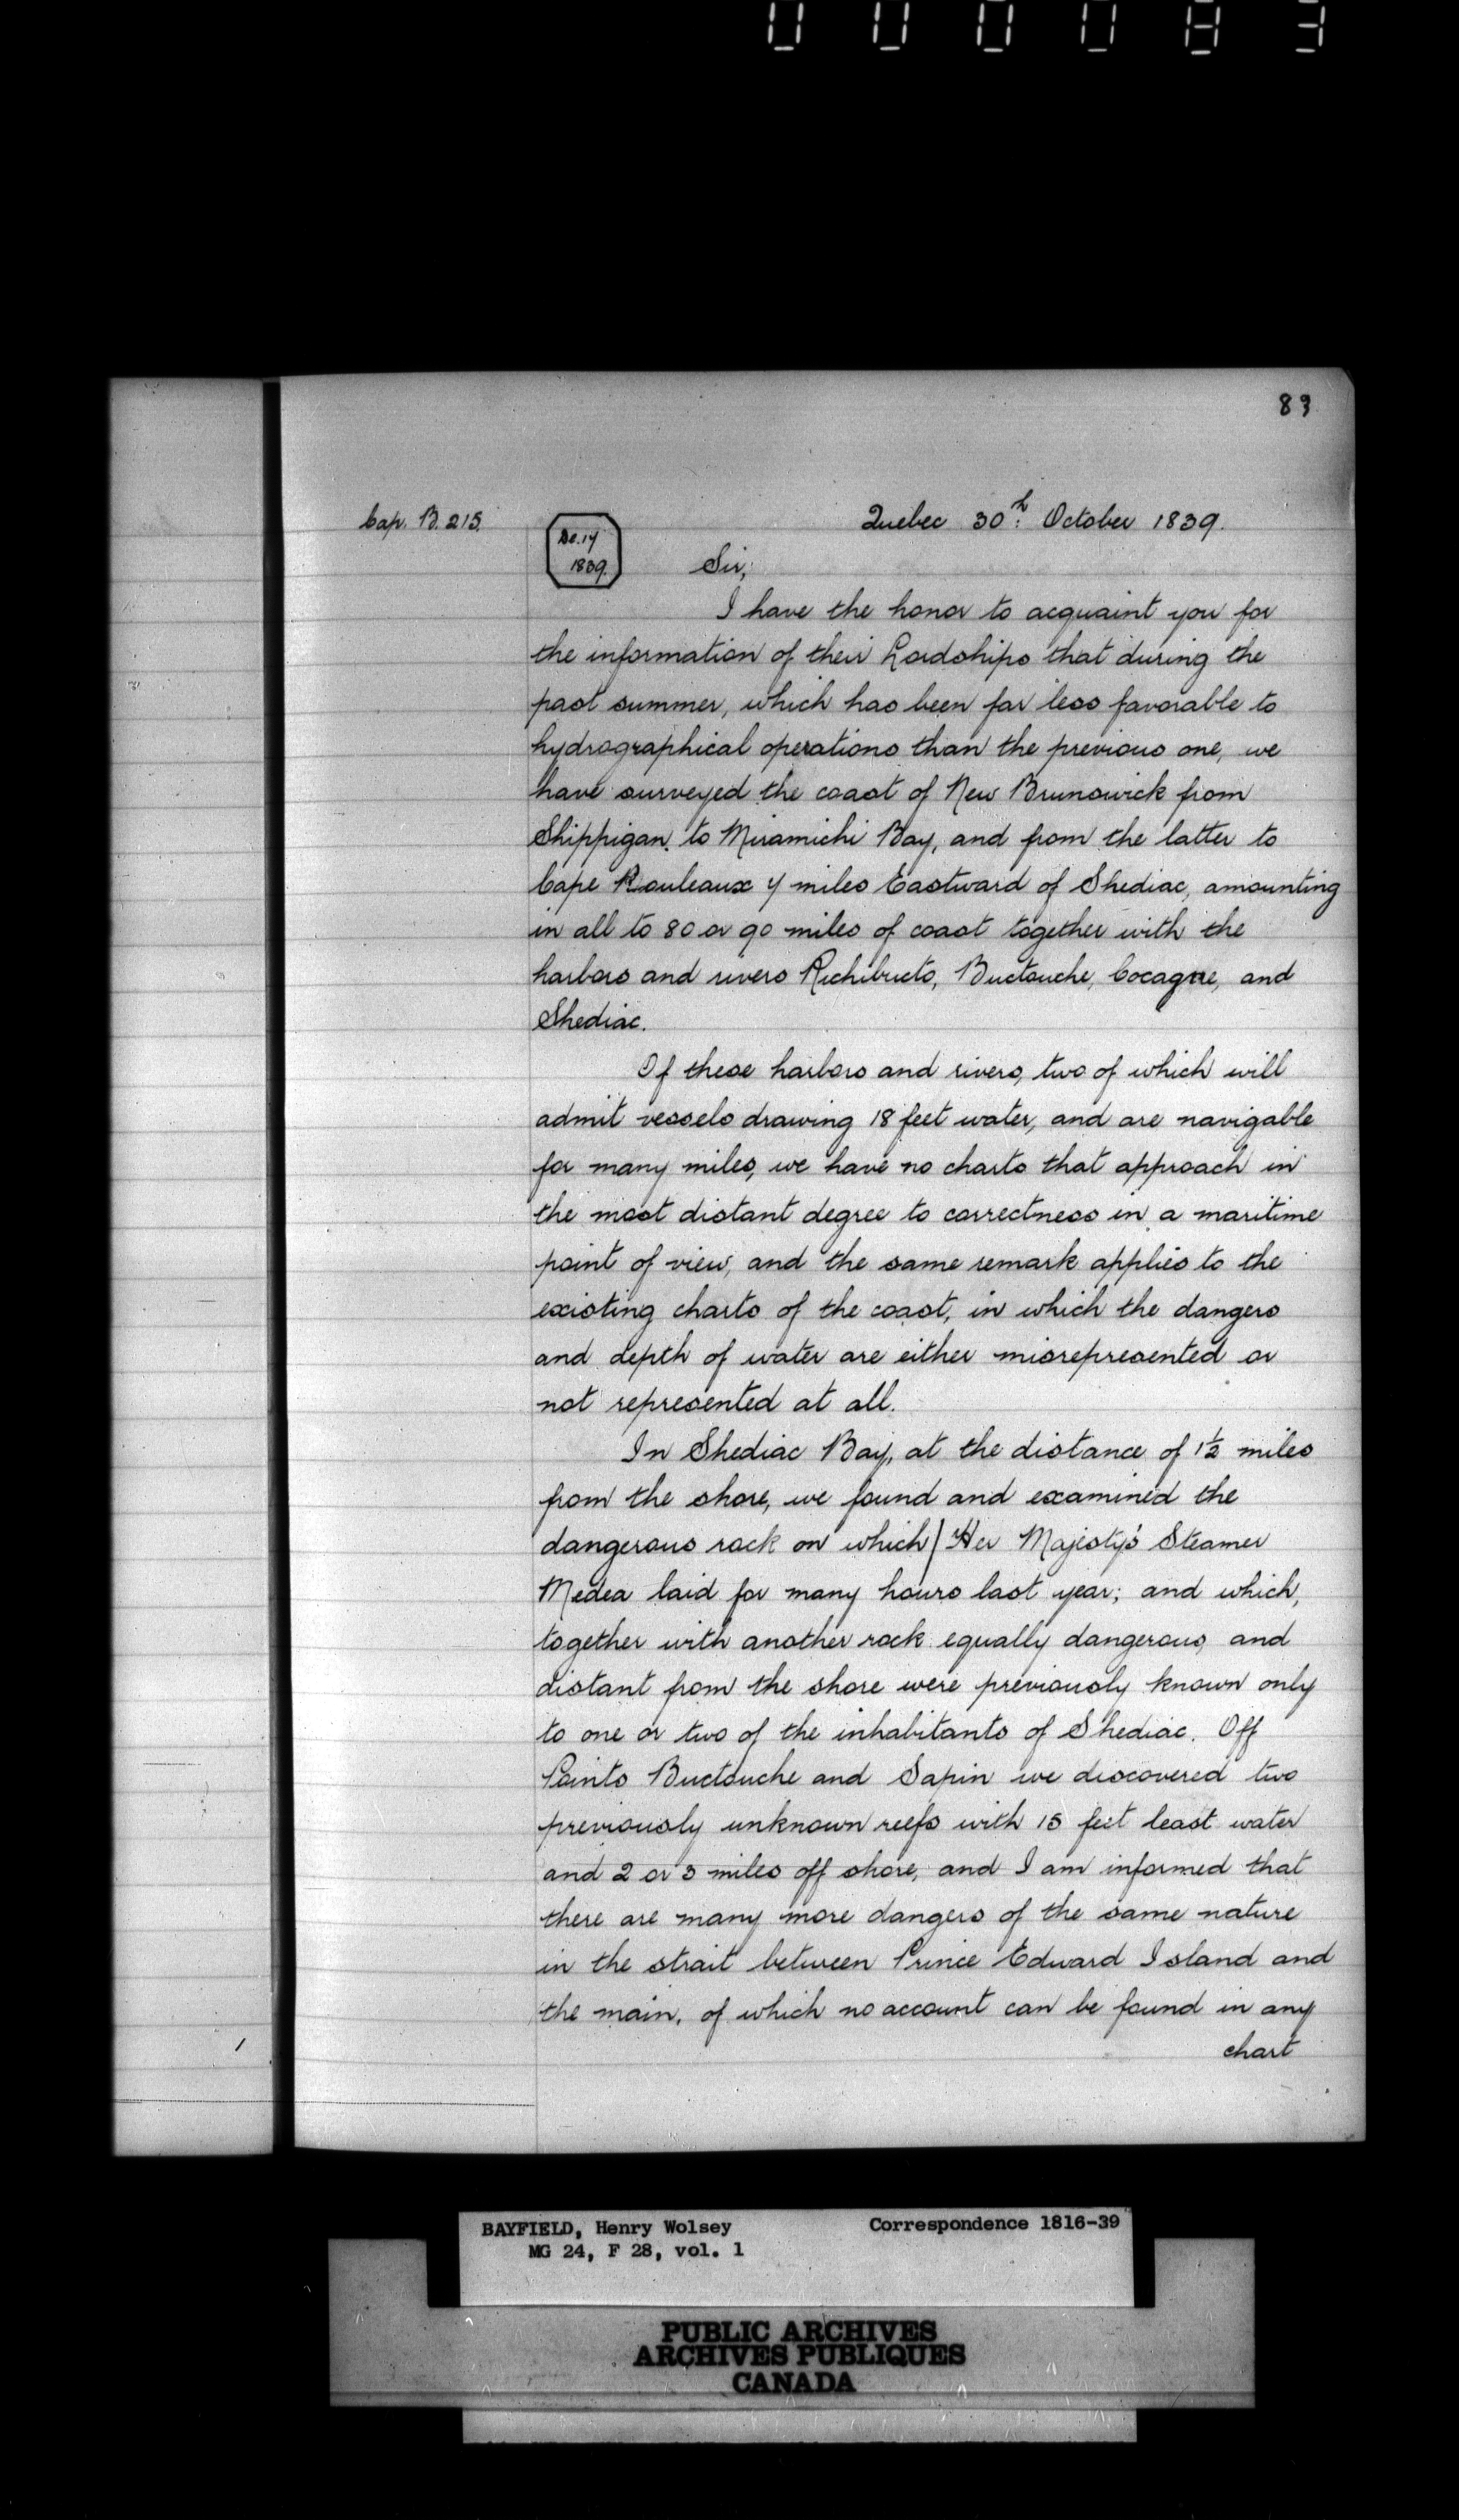 000083
83
Cap. B. 215.
Quebec 30th: October 1839.
De. 17
1839.
Sir,
I have the honor to acquaint you for
the information of their Lordships that during the
past summer, which has been far less favorable to
hydrographical operations than the previous one, we
have surveyed the coast of New Brunswick from
Shippigan to Miramichi Bay, and from the latter to
Cape Rouleaux 7 miles Eastward of Shediac, amounting
in all to 80 or 90 miles of coast together with the
harbors and rivers Richibucto, Buctouche, Cocagne, and
Shediac.
Of these harbors and rivers, two of which will
admit vessels drawing 18 feet water, and are navigable
for many miles, we have no charts that approach in
the most distant degree to correctness in a maritime
point of view, and the same remark applies to the
existing charts of the coast, in which the dangers
and depth of water are either misrepresented or
not represented at all.
In Shediac Bay, at the distance of 1½ miles
from the shore, we found and examined the
dangerous rock on which Her Majesty's Steamer
Medea laid for many hours last year; and which,
together with another rock equally dangerous, and
distant from the shore were previously known only
to one or two of the inhabitants of Shediac. Off
Points Buctouche and Sapin we discovered two
previously unknown reefs with 15 feet least water
and 2 or 3 miles off shore, and I am informed that
there are many more dangers of the same nature
in the strait between Prince Edward Island and
the main, of which no account can be found in any
chart
BAYFIELD, Henry Wolsey Correspondence 1816-39
MG 24, F 28, vol. 1
PUBLIC ARCHIVES
ARCHIVES PUBLIQUES
CANADA